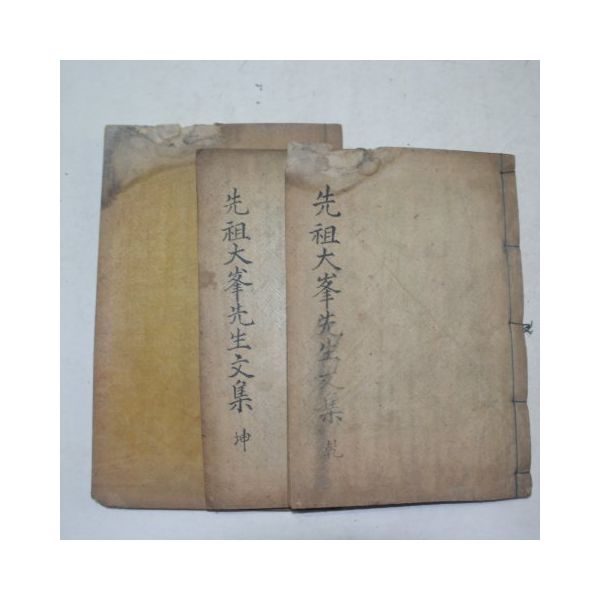 先祖大峯先生文集
乾
先祖大峯先生文集
坤